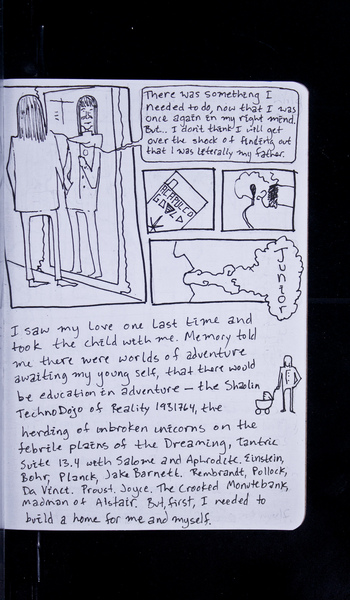 There was something I
needed to do, now that I was
once again in my right mind.
But... I don't think I will get
over the shock of finding out
that I was literally my father.
ACAPULCO
GOLD
Junior
I saw my Love one last time and
took the child with me. Memory told
me there were worlds of adventure
awaiting my young self, that there would
be education in adventure — the Shaolin
TechnoDojo of Reality 1931764, the
herding of unbroken unicorns on the
febrile plains of the Dreaming, Tantric
Suite 13.4 with Salome and Aphrodite. Einstein,
Bohr, Planck, Jake Barnett. Rembrandt, Pollock,
Da Vinci. Proust. Joyce. The Crooked Montebank,
Madman of Alstair. But, first, I needed to
build a home for me and myself.